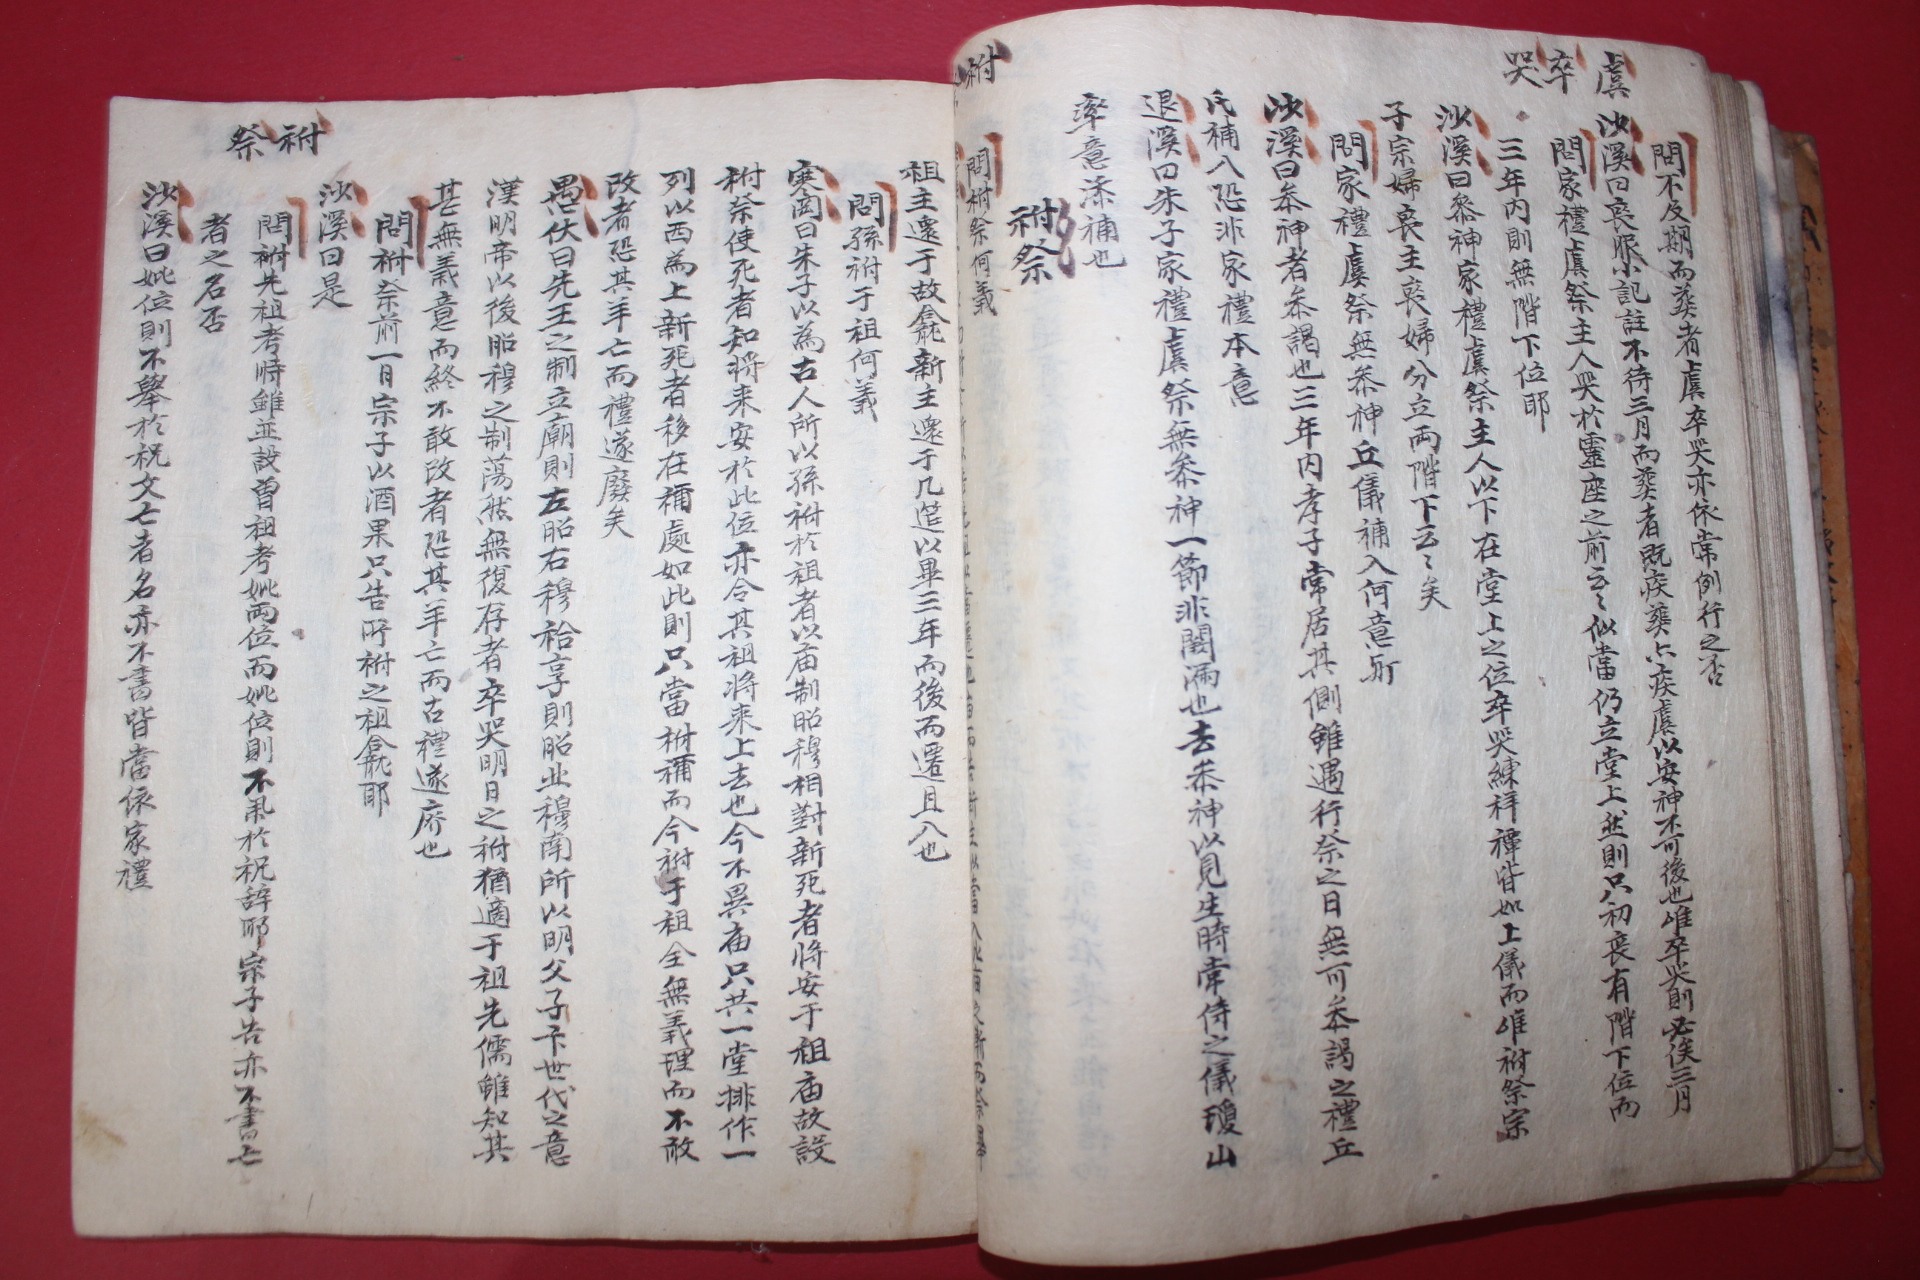 虞 卒 哭
問不及期而葬者虞卒哭亦依常例行之否
沙溪曰喪服小記註不待三月而葬者既疾葬亦疾虞以安神不可後也唯卒哭則必俟三月
問家禮虞祭主人哭於靈座之前云〻似當仍立堂上然則只初喪有階下位而
三年内則無階下位耶
沙溪曰叅神家禮虞祭主人以下在堂上之位卒哭練祥禫皆如上儀而唯祔祭宗
子宗婦喪主喪婦分立両階下云〻矣
問家禮虞祭無叅神丘儀補入何意所
沙溪曰叅神者叅謁也三年内孝子常居其側雖遇行祭之日無可叅謁之禮丘
氏補入恐非家禮本意
退溪曰朱子家禮虞祭無叅神一節非闕漏也去叅神以見生時常侍之儀瓊山
率意添補也
祔祭
祔
問祔祭何義
祔 祭
祖主遷于故龕新主遷于几筵以畢三年而後而遷且入也
問孫祔于祖何義
寒岡曰朱子以為古人所以孫祔於祖者以庙制昭穆相對新死者將安于祖庙故設
祔祭使死者知將来安於此位亦令其祖將来上去也今不異庙只共一堂排作一
列以西為上新死者移在禰處如此則只當祔禰而今祔于祖全無義理而不敢
改者恐其羊亡而禮遂廢矣
愚伏曰先王之制立廟則左昭右穆祫享則昭北穆南所以明父子卞世代之意
漢明帝以後昭穆之制蕩然無復存者卒哭明日之祔猶適于祖先儒雖知其
甚無義意而終不敢改者恐其羊亡而古禮遂廃也
問祔祭前一日宗子以酒果只告所祔之祖龕耶
沙溪曰是
問祔先祖考時雖並設曽祖考妣両位而妣位則不告於祝辞耶宗子告亦不書亡
者之名否
沙溪曰妣位則不舉於祝文亡者名亦不書皆當依家禮